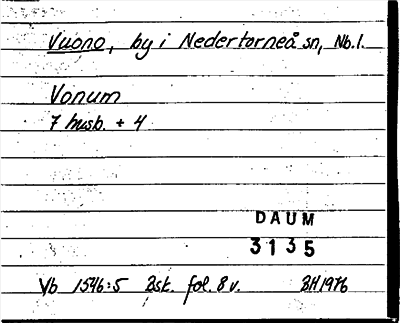 Vuono, by i Nedertorneå sn, Nb.l.
Vonum
7 husb. + 4
DAUM
3135
Vb 1546:5 Bsk. fol. 8 v. BH 1976